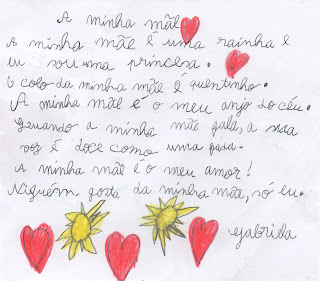 A minha mãe
A minha mãe é uma rainha e
eu sou uma princesa.
O colo da minha mãe é quentinho.
A minha mãe é o meu anjo do céu.
Quando a minha mãe fala, a sua
voz é doce como uma fada.
A minha mãe é o meu amor!
Niguém gosta da minha mãe, só eu.
Gabriela